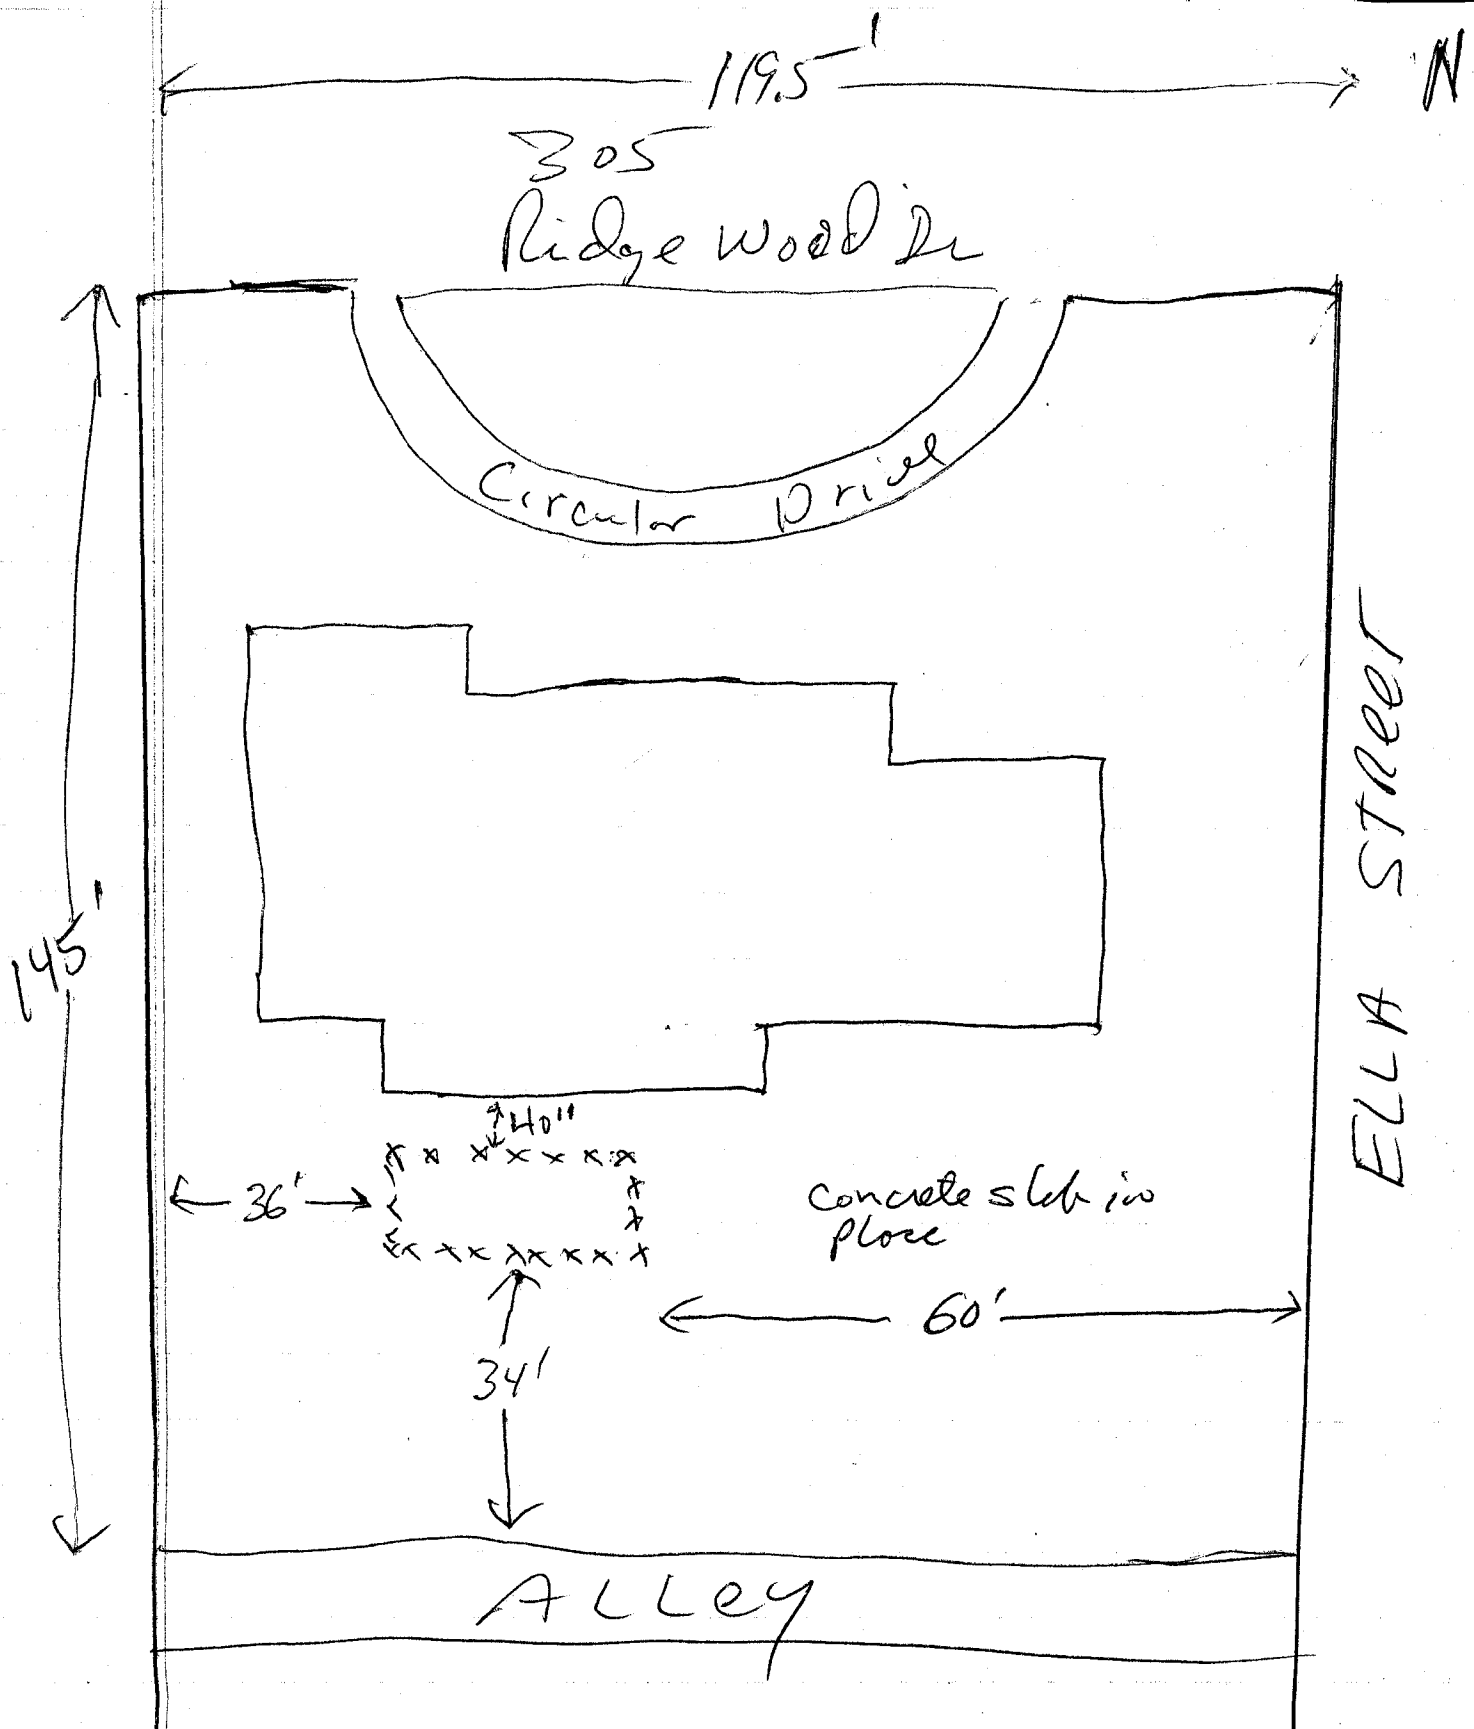 N
119.5'
305
Ridge Wood Dr
Circular Drive
145'
ELLA STREET
40"
36'
Concrete slab in
place
60'
34'
ALLey